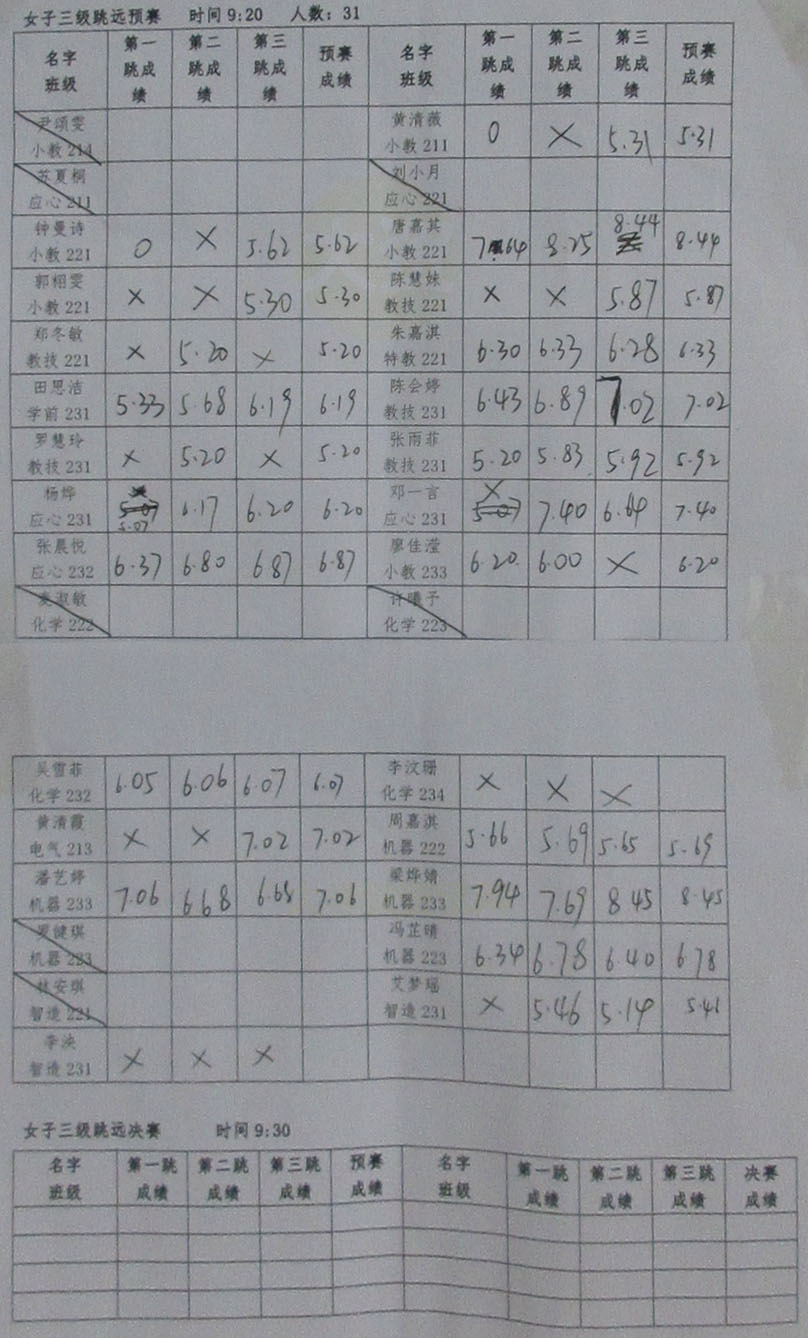 女子三级跳远预赛 时间9:20 人数：31
名字 班级 第一跳成绩 第二跳成绩 第三跳成绩 预赛成绩 名字 班级 第一跳成绩 第二跳成绩 第三跳成绩 预赛成绩
尹颂雯 小教214 黄清薇 小教211 0 × 5.31 5.31
苏夏桐 应心211 刘小月 应心221
钟曼诗 小教221 0 × 5.62 5.62 唐嘉其 小教221 7.64 8.25 8.44 8.44
郭栩雯 小教221 × × 5.30 5.30 陈慧妹 教技221 × × 5.87 5.87
郑冬敏 教技221 × 5.20 × 5.20 朱嘉淇 特教221 6.30 6.33 6.28 6.33
田思洁 学前231 5.33 5.68 6.19 6.19 陈会婷 教技231 6.43 6.89 7.02 7.02
罗慧玲 教技231 × 5.20 × 5.20 张雨菲 教技231 5.20 5.83 5.92 5.92
杨烨 应心231 5.07 6.17 6.20 6.20 邓一言 应心231 × 5.07 7.40 6.64 7.40
张晨悦 应心232 6.37 6.80 6.87 6.87 廖佳滢 小教233 6.20 6.00 × 6.20
麦淑敏 化学222 许曦子 化学223
吴雪菲 化学232 6.05 6.06 6.07 6.07 李汶珊 化学234 × × ×
黄清霞 电气213 × × 7.02 7.02 周嘉淇 机器222 5.66 5.69 5.65 5.69
潘艺婷 机器233 7.06 6.68 6.65 7.06 梁烨婧 机器233 7.94 7.69 8.45 8.45
罗健琪 机器223 冯芷晴 机器223 6.34 6.78 6.40 6.78
林安琪 智造221 艾梦瑶 智造231 × 5.46 5.14 5.46
李泱 智造231 × × ×
女子三级跳远决赛 时间9:30
名字 班级 第一跳成绩 第二跳成绩 第三跳成绩 预赛成绩 名字 班级 第一跳成绩 第二跳成绩 第三跳成绩 决赛成绩